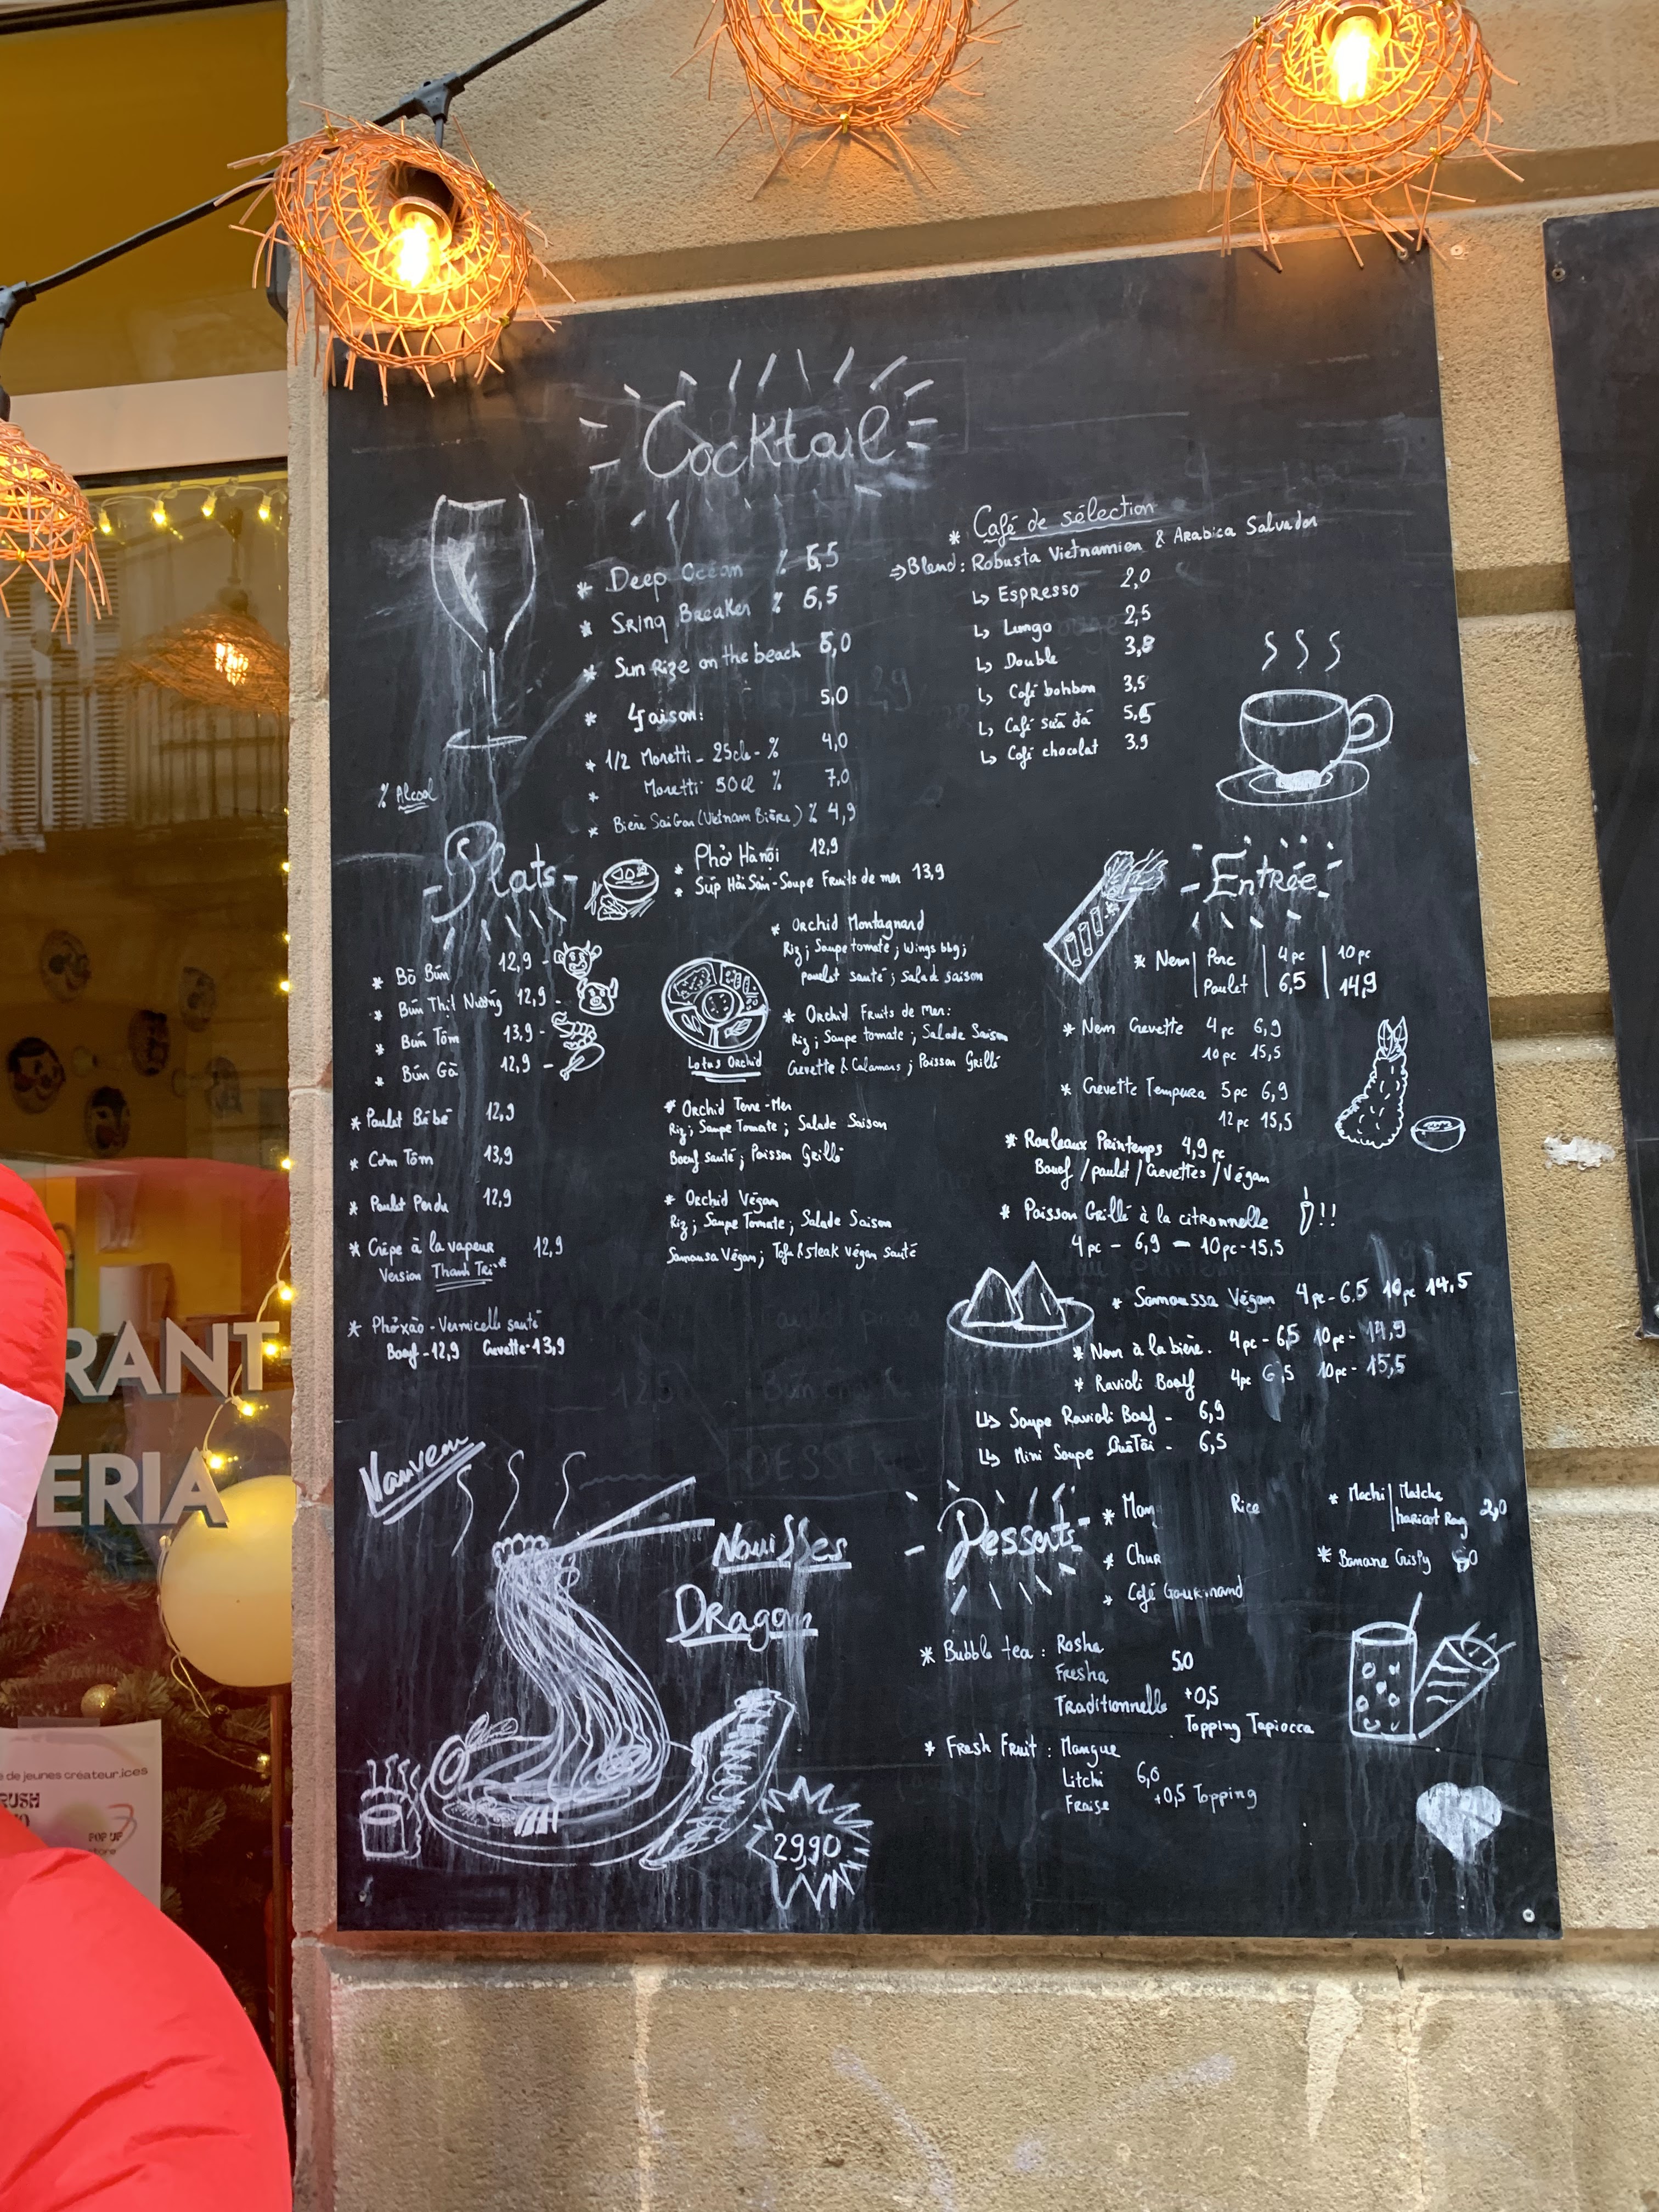 Cocktail
* Deep Ocean % 5,5
* Sring Breaker % 6,5
* Sun Rize on the beach 5,0
* 4 Saison: 5,0
* 1/2 Moretti - 25cl - % 4,0
* Moretti 50cl % 7,0
* Bière SaiGon (Vietnam Bière) % 4,9
% Alcool
* Café de sélection
⇒ Blend: Robusta Vietnamien & Arabica Salvador
↳ Espresso 2,0
↳ Lungo 2,5
↳ Double 3,8
↳ Café bonbon 3,5
↳ Café sữa đá 5,5
↳ Café chocolat 3,9
- Plats -
* Phở Hànôi 12,9
* Súp Hải Sản - Soupe Fruits de mer 13,9
* Bò Bún 12,9 -
* Bún Thịt Nướng 12,9 -
* Bún Tôm 13,9 -
* Bún Gà 12,9 -
* Poulet Bébé 12,9
* Com Tôm 13,9
* Poulet Pendu 12,9
* Crêpe à la vapeur 12,9
Version Thanh Trì*
* Phở xào - Vermicelle sauté
Boeuf - 12,9 Crevette - 13,9
Lotus Orchid
* Orchid Montagnard
Riz; Soupe tomate; Wings bbq;
poulet sauté; Salad saison
* Orchid Fruits de Mer:
Riz; Soupe tomate; Salade Saison
Crevette & Calamars; Poisson Grillé
* Orchid Terre-Mer
Riz; Soupe Tomate; Salade Saison
Boeuf sauté; Poisson Grillé
* Orchid Végan
Riz; Soupe Tomate; Salade Saison
Samousa Végan; Tofu & steak végan sauté
- Entrée -
* Nem | Porc | 4pc | 10pc
Poulet | 6,5 | 14,9
* Nem Crevette 4pc 6,9
10pc 15,5
* Crevette Tempura 5pc 6,9
12pc 15,5
* Rouleaux Printemps 4,9 pc
Boeuf / poulet / Crevettes / Végan
* Poisson Grillé à la citronnelle !!
4pc - 6,9 - 10pc - 15,5
* Samoussa Végan 4pc - 6.5 10pc 14,5
* Nem à la bière. 4pc - 6,5 10pc - 14,9
* Ravioli Boeuf 4pc 6,5 10pc - 15,5
↳ Soupe Ravioli Boeuf - 6,9
↳ Mini Soupe - 6,5
Nouveau
Nouilles
Dragon
29,90
Desserts
* Man Rice
* Chur
* Café Gourmand
* Mochi | Matcha
haricot Roug 2,0
* Banane Crispy
* Bubble tea: Rosha
Fresha 5.0
Traditionnelle +0,5
Topping Tapiocca
* Fresh Fruit: Mangue
Litchi 6,0
Fraise +0,5 Topping
RANT
ERIA
e de jeunes créateur.ices
RUSH
POP UP
store